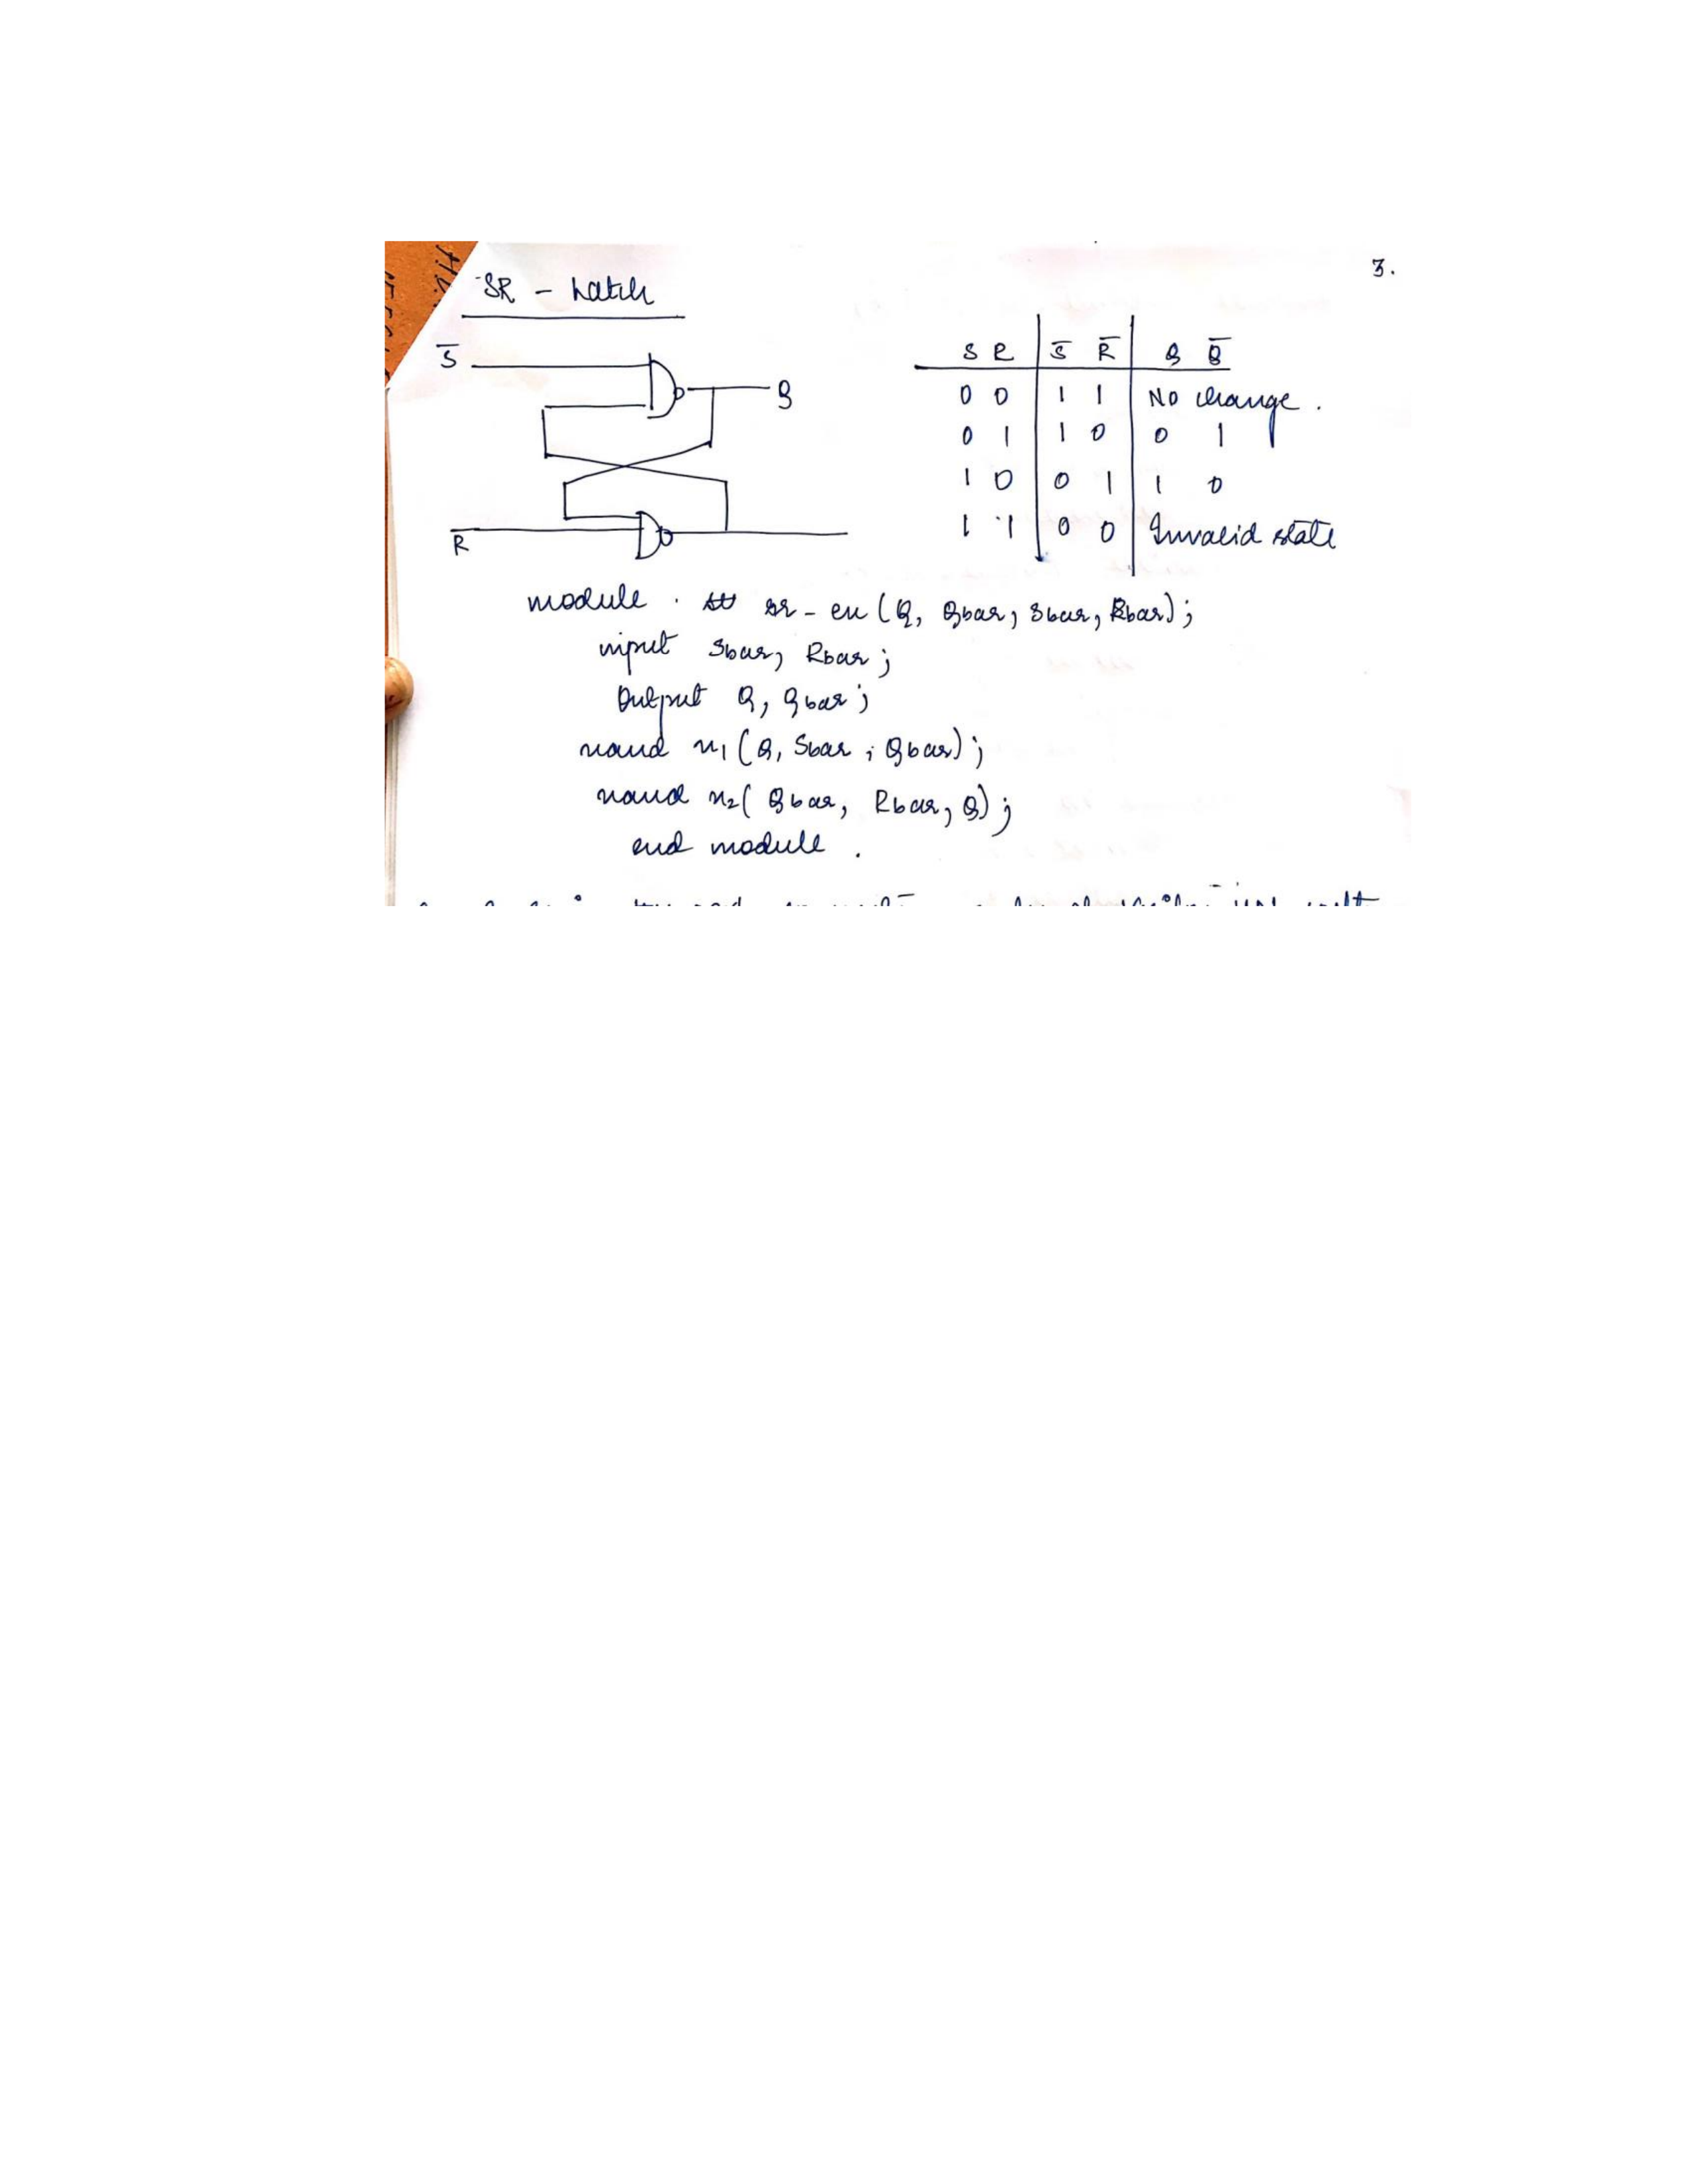 3.
SR - Latch
S̅
Q
R̅
S R | S̅ R̅ | Q Q̅
0 0 | 1 1 | No change .
0 1 | 1 0 | 0 1
1 0 | 0 1 | 1 0
1 1 | 0 0 | Invalid state
module . sr - en (Q, Qbar, Sbar, Rbar);
input Sbar, Rbar;
Output Q, Qbar;
nand n1 (Q, Sbar, Qbar);
nand n2( Qbar, Rbar, Q);
end module .